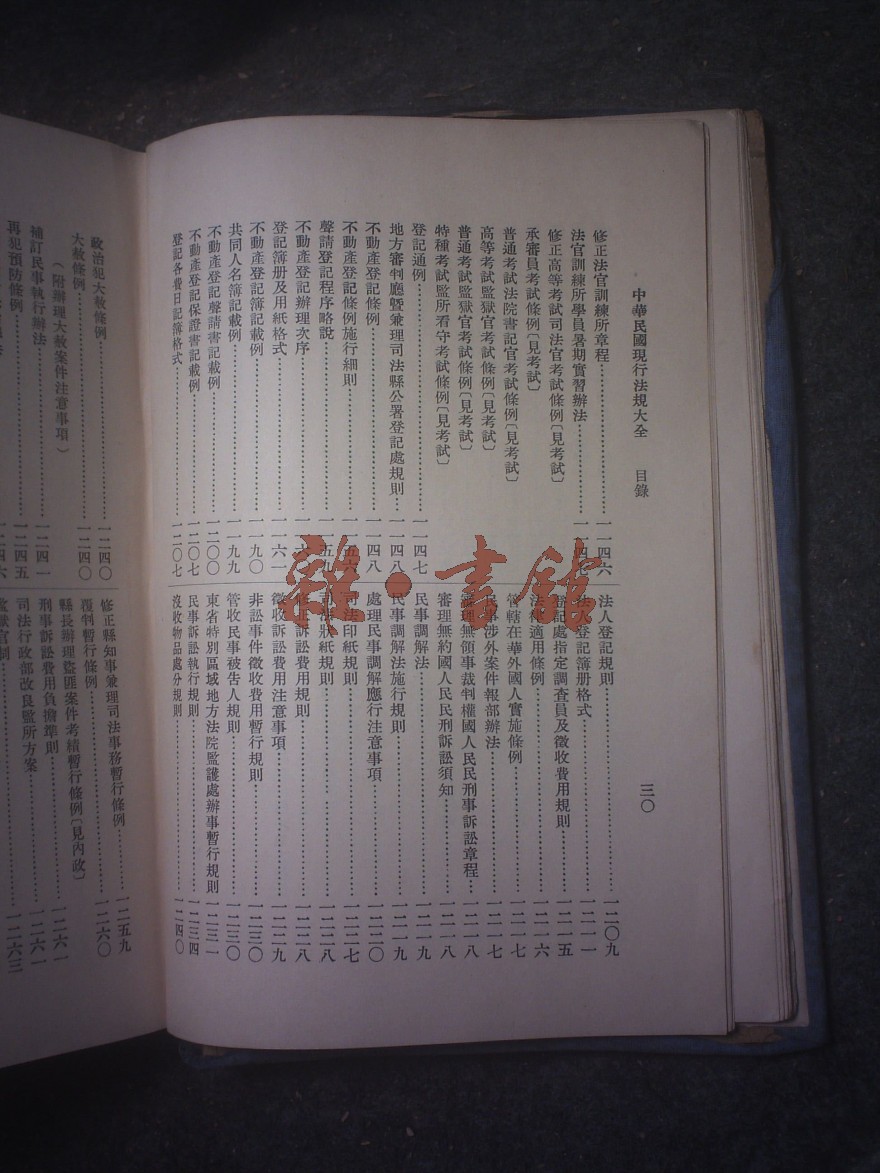 中華民國現行法規大全 目錄 三〇
修正法官訓練所章程 一一四六
法官訓練所學員暑期實習辦法 一一四七
修正高等考試司法官考試條例〔見考試〕
承審員考試條例〔見考試〕
普通考試法院書記官考試條例〔見考試〕
高等考試監獄官考試條例〔見考試〕
普通考試監獄官考試條例〔見考試〕
特種考試監所看守考試條例〔見考試〕
登記通例 一一四七
地方審判廳暨兼理司法縣公署登記處規則 一一四八
不動產登記條例 一一四八
不動產登記條例施行細則 一一五六
聲請登記程序略說 一一五九
不動產登記辦理次序
登記簿册及用紙格式 一一六一
不動產登記簿記載例 一一九〇
共同人名簿記載例 一一九九
不動產登記聲請書記載例 一二〇〇
不動產登記保證書記載例 一二〇七
登記各費日記簿格式 一二〇七
法人登記規則 一二〇九
法人登記簿册格式 一二一一
登記處指定調查員及徵收費用規則 一二一五
法律適用條例 一二一六
管轄在華外國人實施條例 一二一七
民事涉外案件報部辦法 一二一七
審理無領事裁判權國人民民刑事訴訟章程 一二一八
審理無約國人民民刑訴訟須知 一二一八
民事調解法 一二一九
民事調解法施行規則 一二一九
處理民事調解應行注意事項 一二二〇
司法印紙規則 一二二七
司法狀紙規則 一二二八
修正訴訟費用規則 一二二八
徵收訴訟費用注意事項 一二二九
非訟事件徵收費用暫行規則 一二三〇
管收民事被告人規則 一二三〇
東省特別區域地方法院監護處辦事暫行規則 一二三一
民事訴訟執行規則 一二三四
沒收物品處分規則 一二四〇
政治犯大赦條例 一二四〇
大赦條例 一二四〇
（附辦理大赦案件注意事項）
補訂民事執行辦法 一二四一
再犯預防條例 一二四五
一二四六
修正縣知事兼理司法事務暫行條例 一二五九
覆判暫行條例 一二六〇
縣長辦理盜匪案件考績暫行條例〔見內政〕
刑事訴訟費用負擔準則 一二六一
司法行政部改良監所方案 一二六一
監獄官制 一二六三
雜·書館